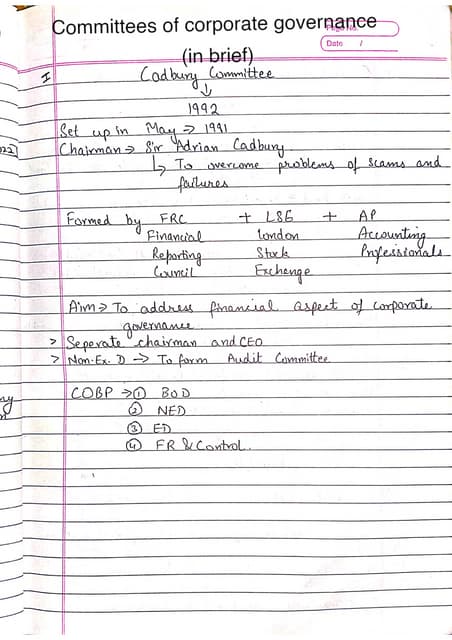 Committees of corporate governance
(in brief)
Page No.
Date /
I
Cadbury Committee
↓
1992
Set up in May → 1991
Chairman → Sir Adrian Cadbury
↳ To overcome problems of scams and
failures
Formed by FRC + LSE + AP
Financial London Accounting
Reporting Stock Professionals
Council Exchange
Aim → To address financial aspect of corporate
governance
> Seperate chairman and CEO
> Non-Ex. D → To form Audit Committee
COBP → ① BOD
② NED
③ ED
④ FR & Control.